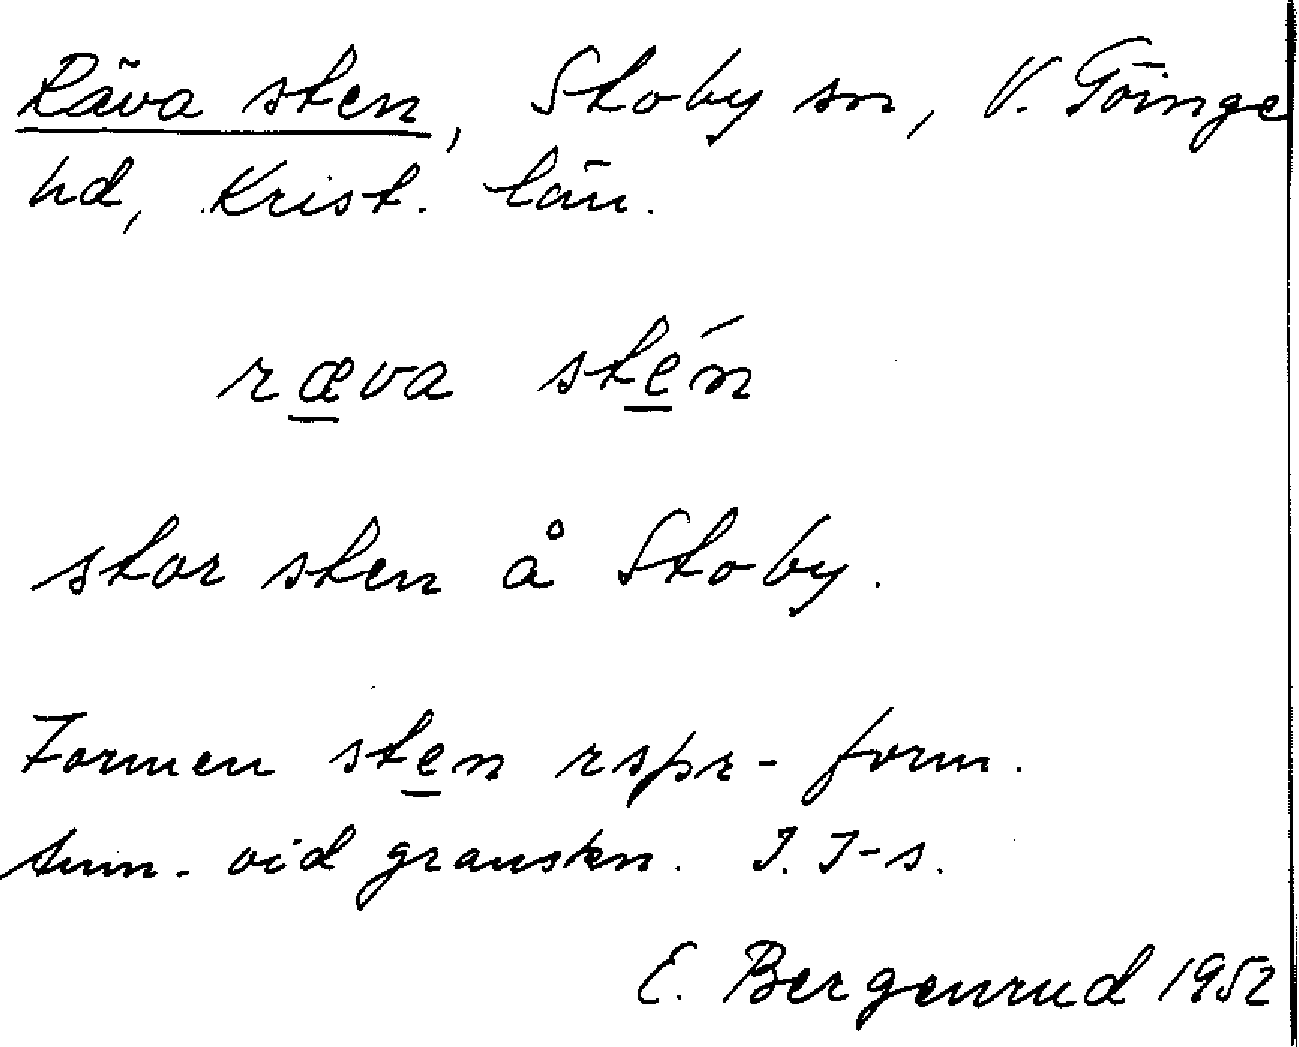 Räva sten, Stoby sn, V. Göinge
hd, Krist. län.
ræva stén
stor sten å Stoby.
Formen sten rspr-form.
Anm. vid granskn. I. I-s.
E. Bergenrud 1952